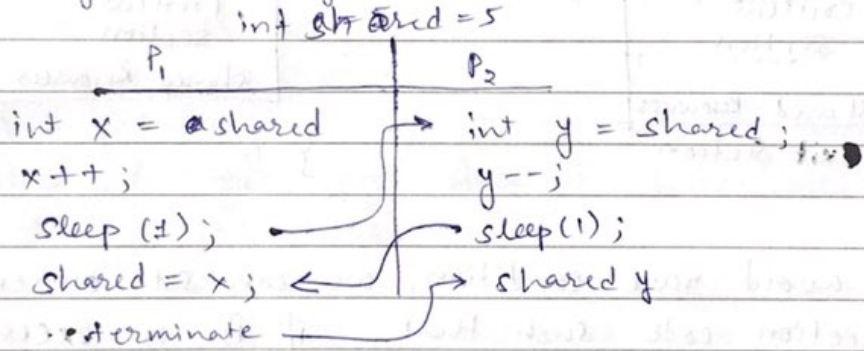 int shared = 5
P1 P2
int x = shared int y = shared;
x++; y--;
sleep (1); sleep(1);
shared = x; shared y
terminate